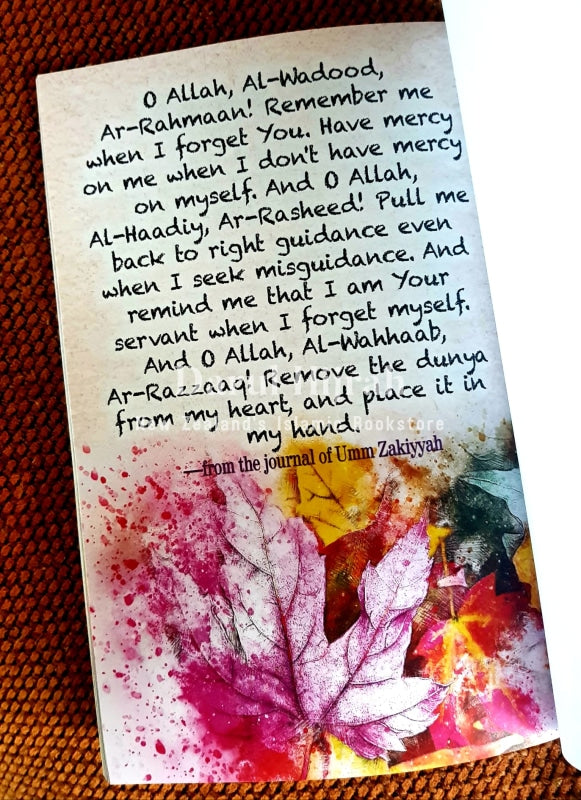 O Allah, Al-Wadood,
Ar-Rahmaan! Remember me
when I forget You. Have mercy
on me when I don't have mercy
on myself. And O Allah,
Al-Haadiy, Ar-Rasheed! Pull me
back to right guidance even
when I seek misguidance. And
remind me that I am Your
servant when I forget myself.
And O Allah, Al-Wahhaab,
Ar-Razzaaq! Remove the dunya
from my heart, and place it in
my hand.
—from the journal of Umm Zakiyyah
New Zealand's Islamic Bookstore